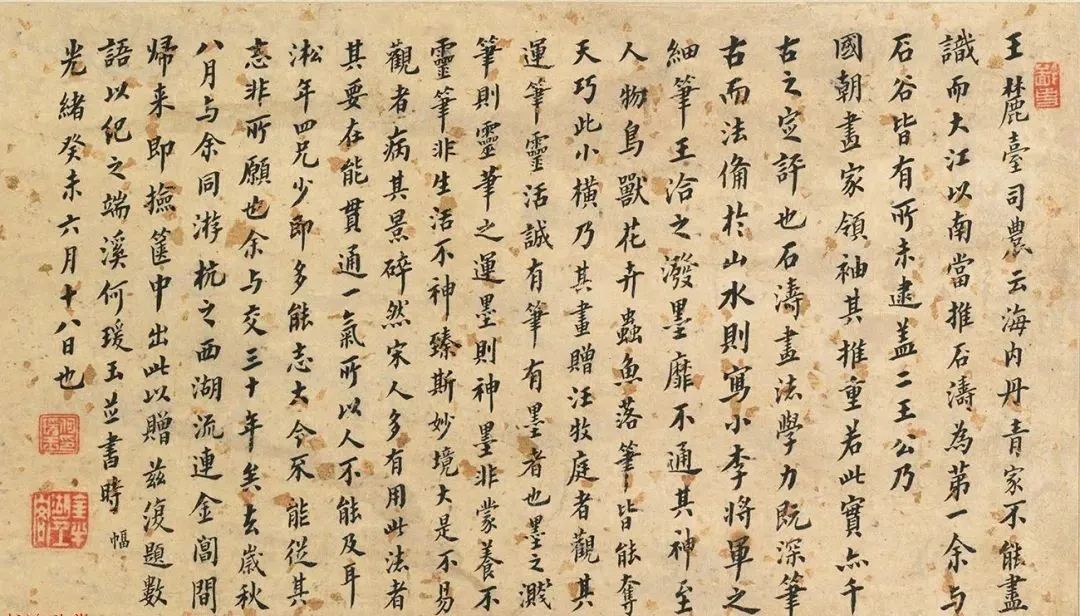 王麓臺司農云海內丹青家不能盡
識而大江以南當推石濤為第一余與
石谷皆有所未逮盖二王公乃
國朝畫家領袖其推重若此實亦千
古之定評也石濤畫法學力既深筆
古而法備於山水則寫小李將軍之
細筆王洽之潑墨靡不通其神至
人物鳥獸花卉蟲魚落筆皆能奪
天巧此小橫乃其畫贈汪牧庭者觀其
運筆靈活誠有筆有墨者也墨之濺
筆則靈筆之運墨則神墨非蒙養不
靈筆非生活不神臻斯妙境大是不易
觀者病其景碎然宋人多有用此法者
其要在能貫通一氣所以人不能及耳
淞年四兄少即多能志大今不能從其
志非所願也余與交三十年矣去歲秋
八月与余同游杭之西湖流連金閶間
歸来即撿篋中出此以贈茲復題數
語以紀之端溪何瑗玉並書時
幅
光緒癸未六月十八日也